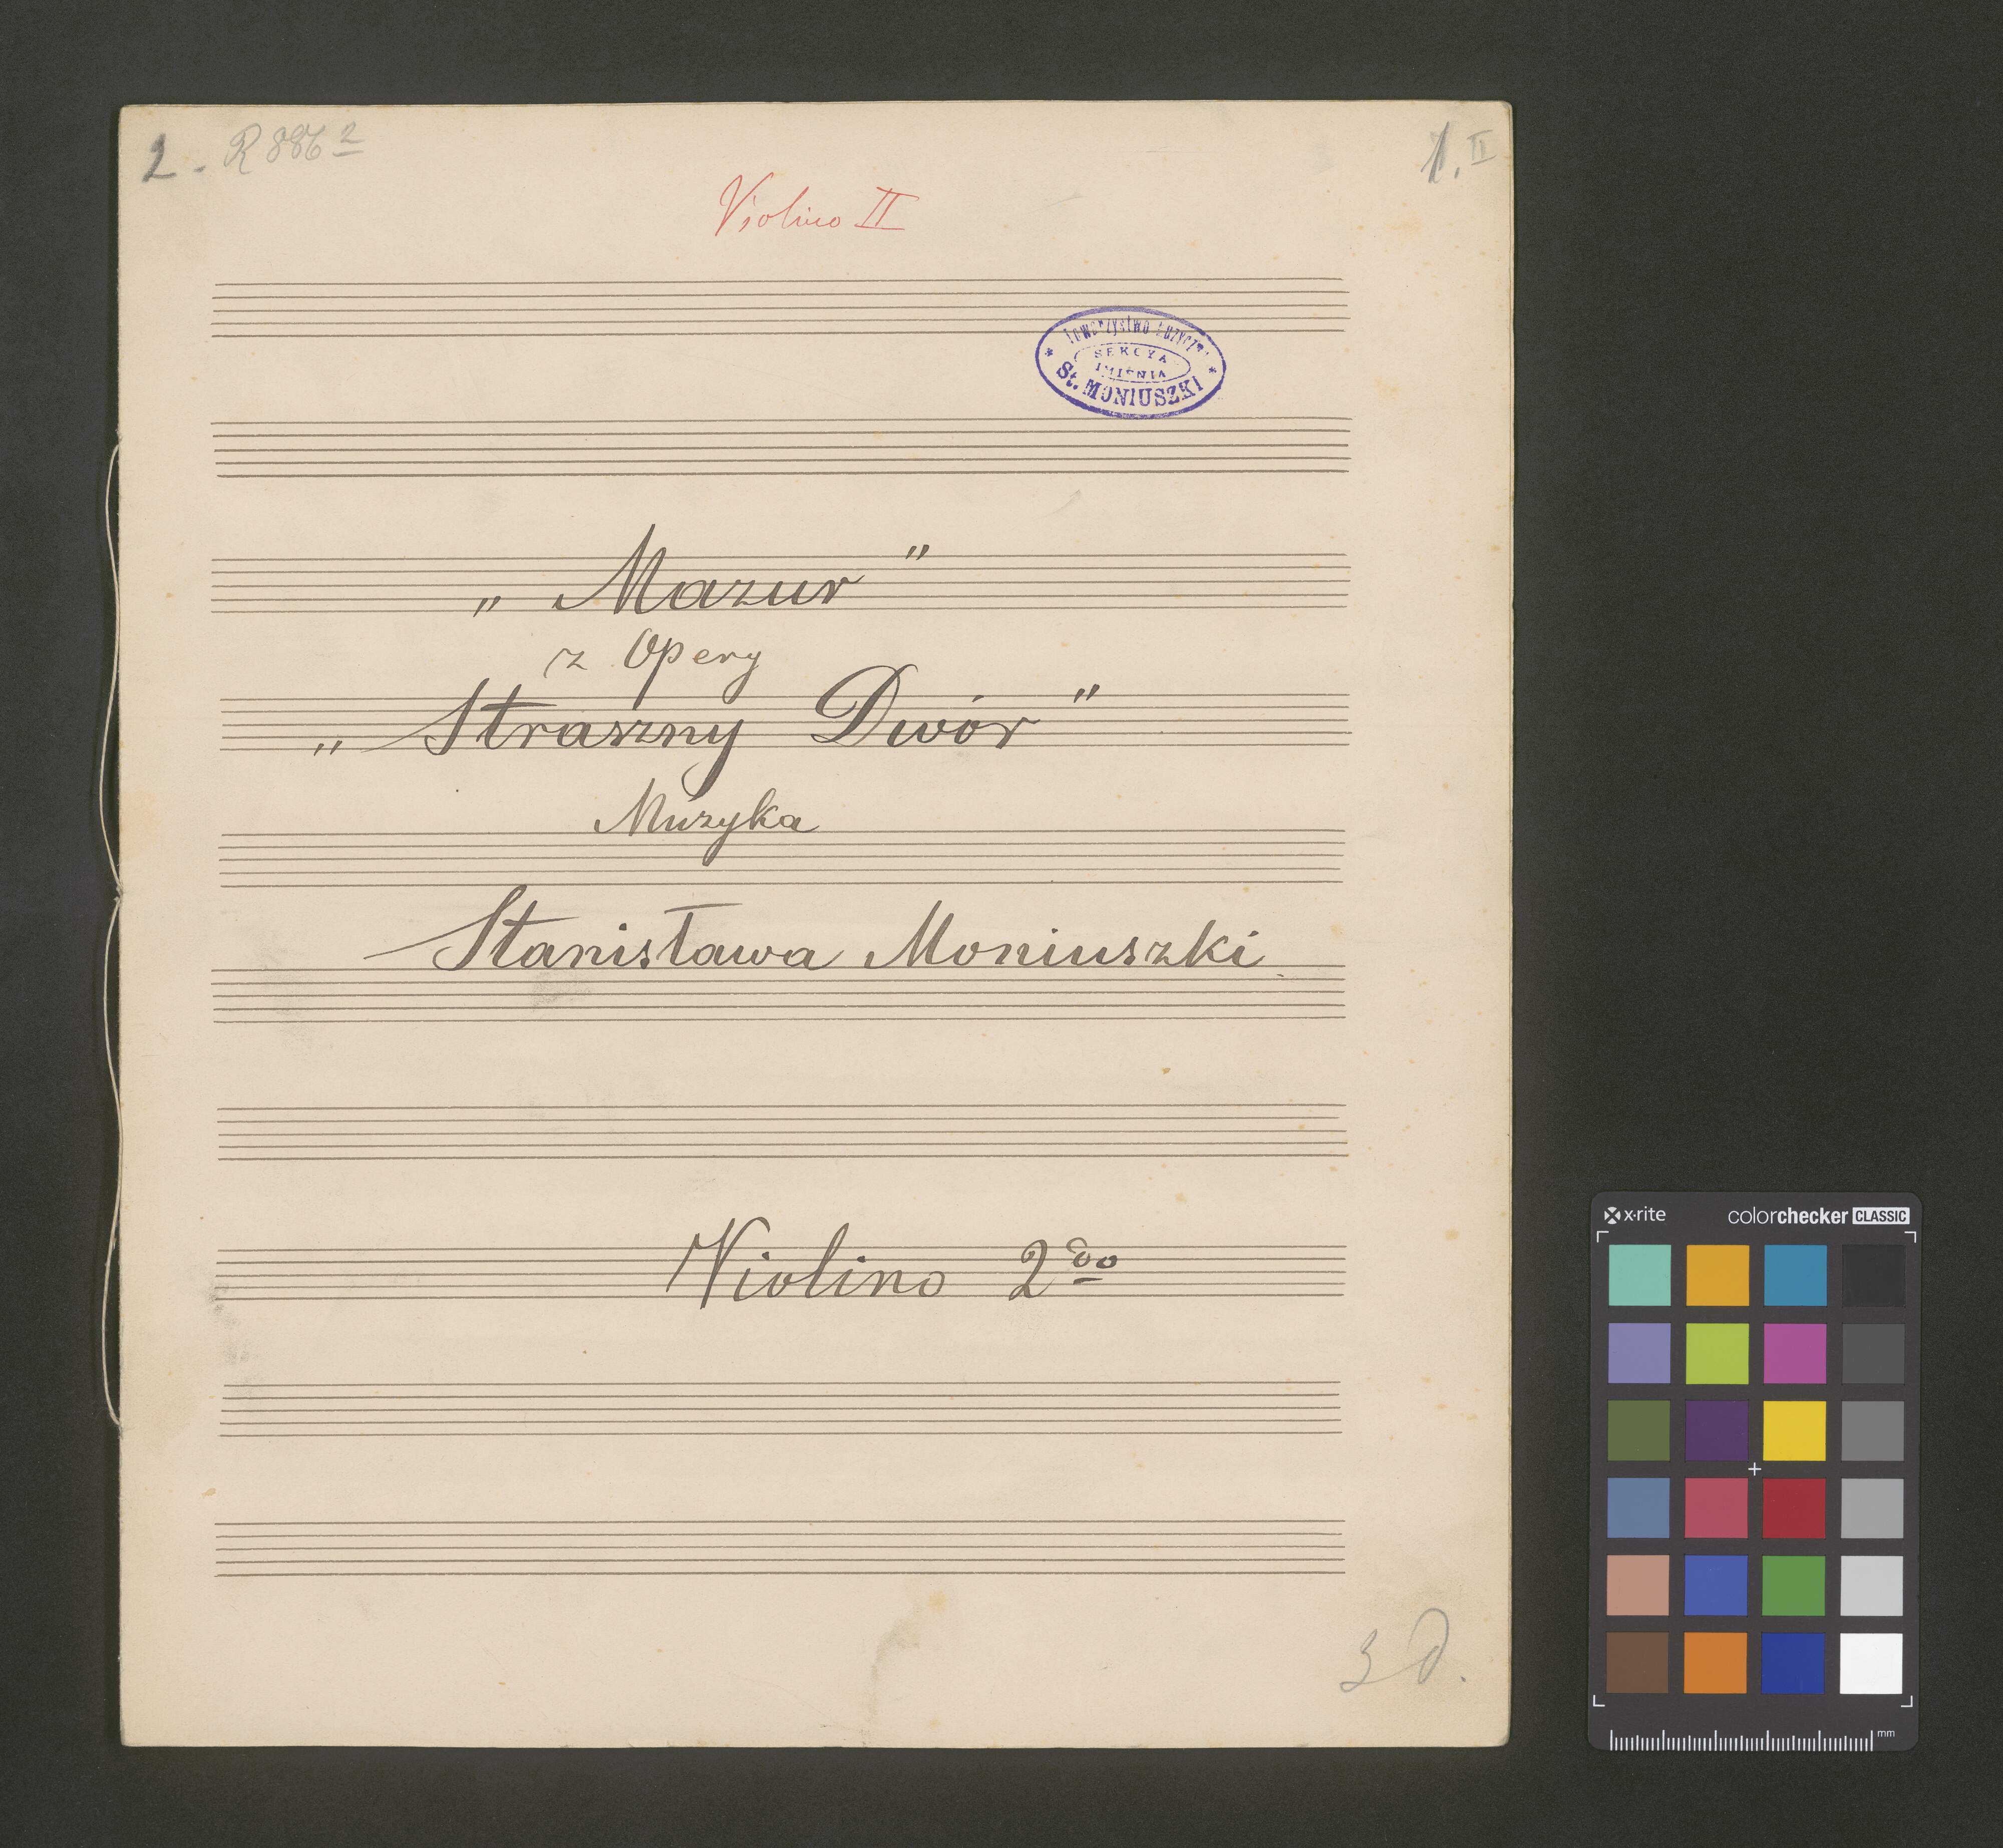 2. R 886 2
1. II
Violino II
Towarzystwo
SEKCYA
IMIENIA
St. MONIUSZKI
„ Mazur "
z Opery
„ Straszny Dwór "
Muzyka
Stanisława Moniuszki
Violino 2do
x·rite colorchecker CLASSIC
mm